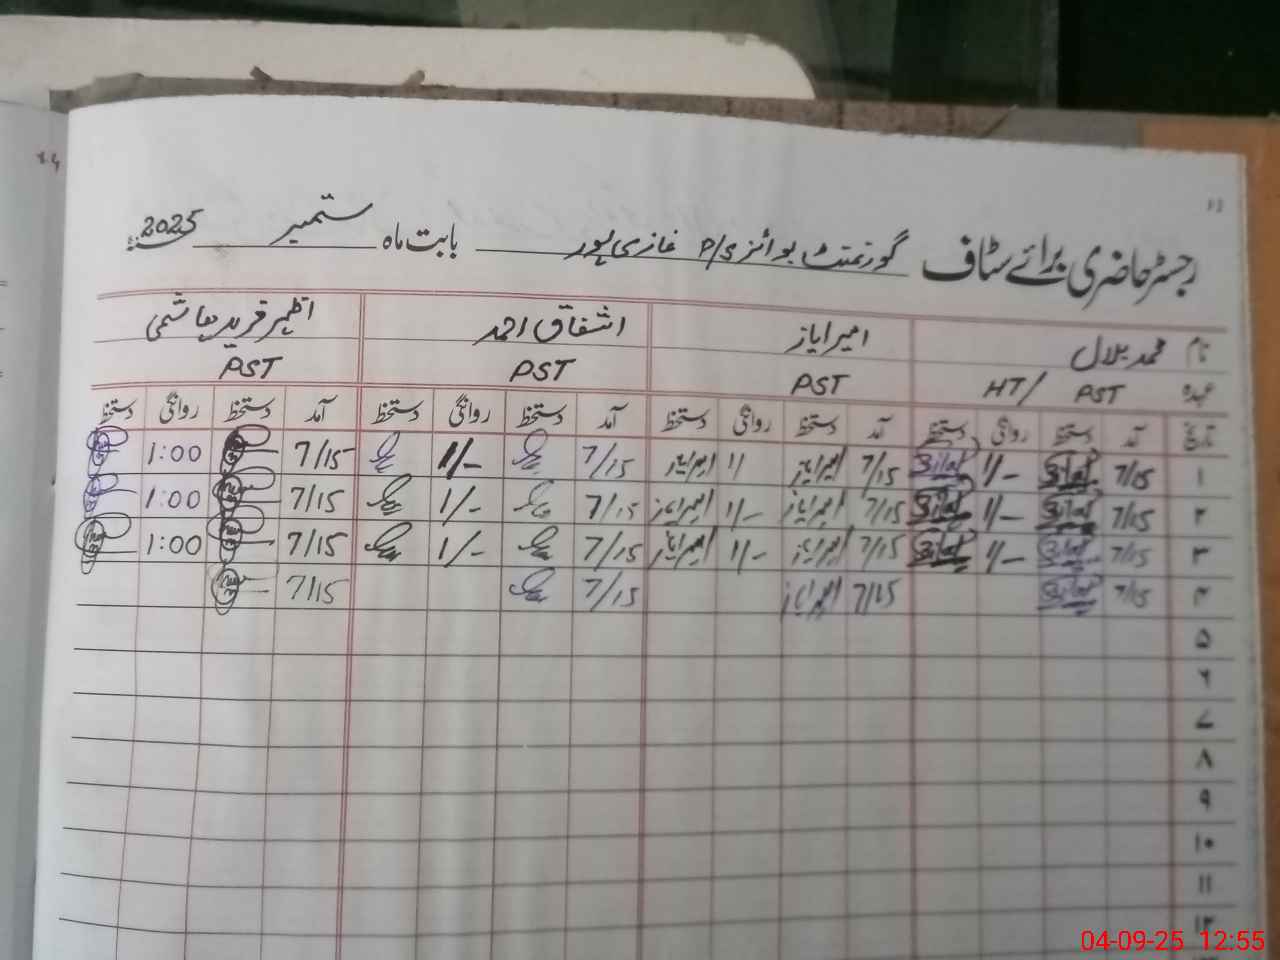 رجسٹر حاضری برائے سٹاف گورنمنٹ بوائز P/S غازی پور بابت ماہ ستمبر 2025
نام محمد بلال امیر ایاز اشفاق احمد اظہر فرید ہاشمی
عہدہ PST HT/ PST PST PST
تاریخ آمد دستخط روانگی دستخط آمد دستخط روانگی دستخط آمد دستخط روانگی دستخط آمد دستخط روانگی دستخط
۱ 7/15 Bilal 1/- Bilal 7/15 امیر ایاز 1/ امیر ایاز 7/15 1/- 7/15 1:00
۲ 7/15 Bilal 1/- Bilal 7/15 امیر ایاز 1/- امیر ایاز 7/15 1/- 7/15 1:00
۳ 7/15 Bilal 1/- Bilal 7/15 امیر ایاز 1/- امیر ایاز 7/15 1/- 7/15 1:00
۴ 7/15 Bilal 7/15 امیر ایاز 7/15 7/15
۵
۶
۷
۸
۹
۱۰
۱۱
۱۲
04-09-25 12:55